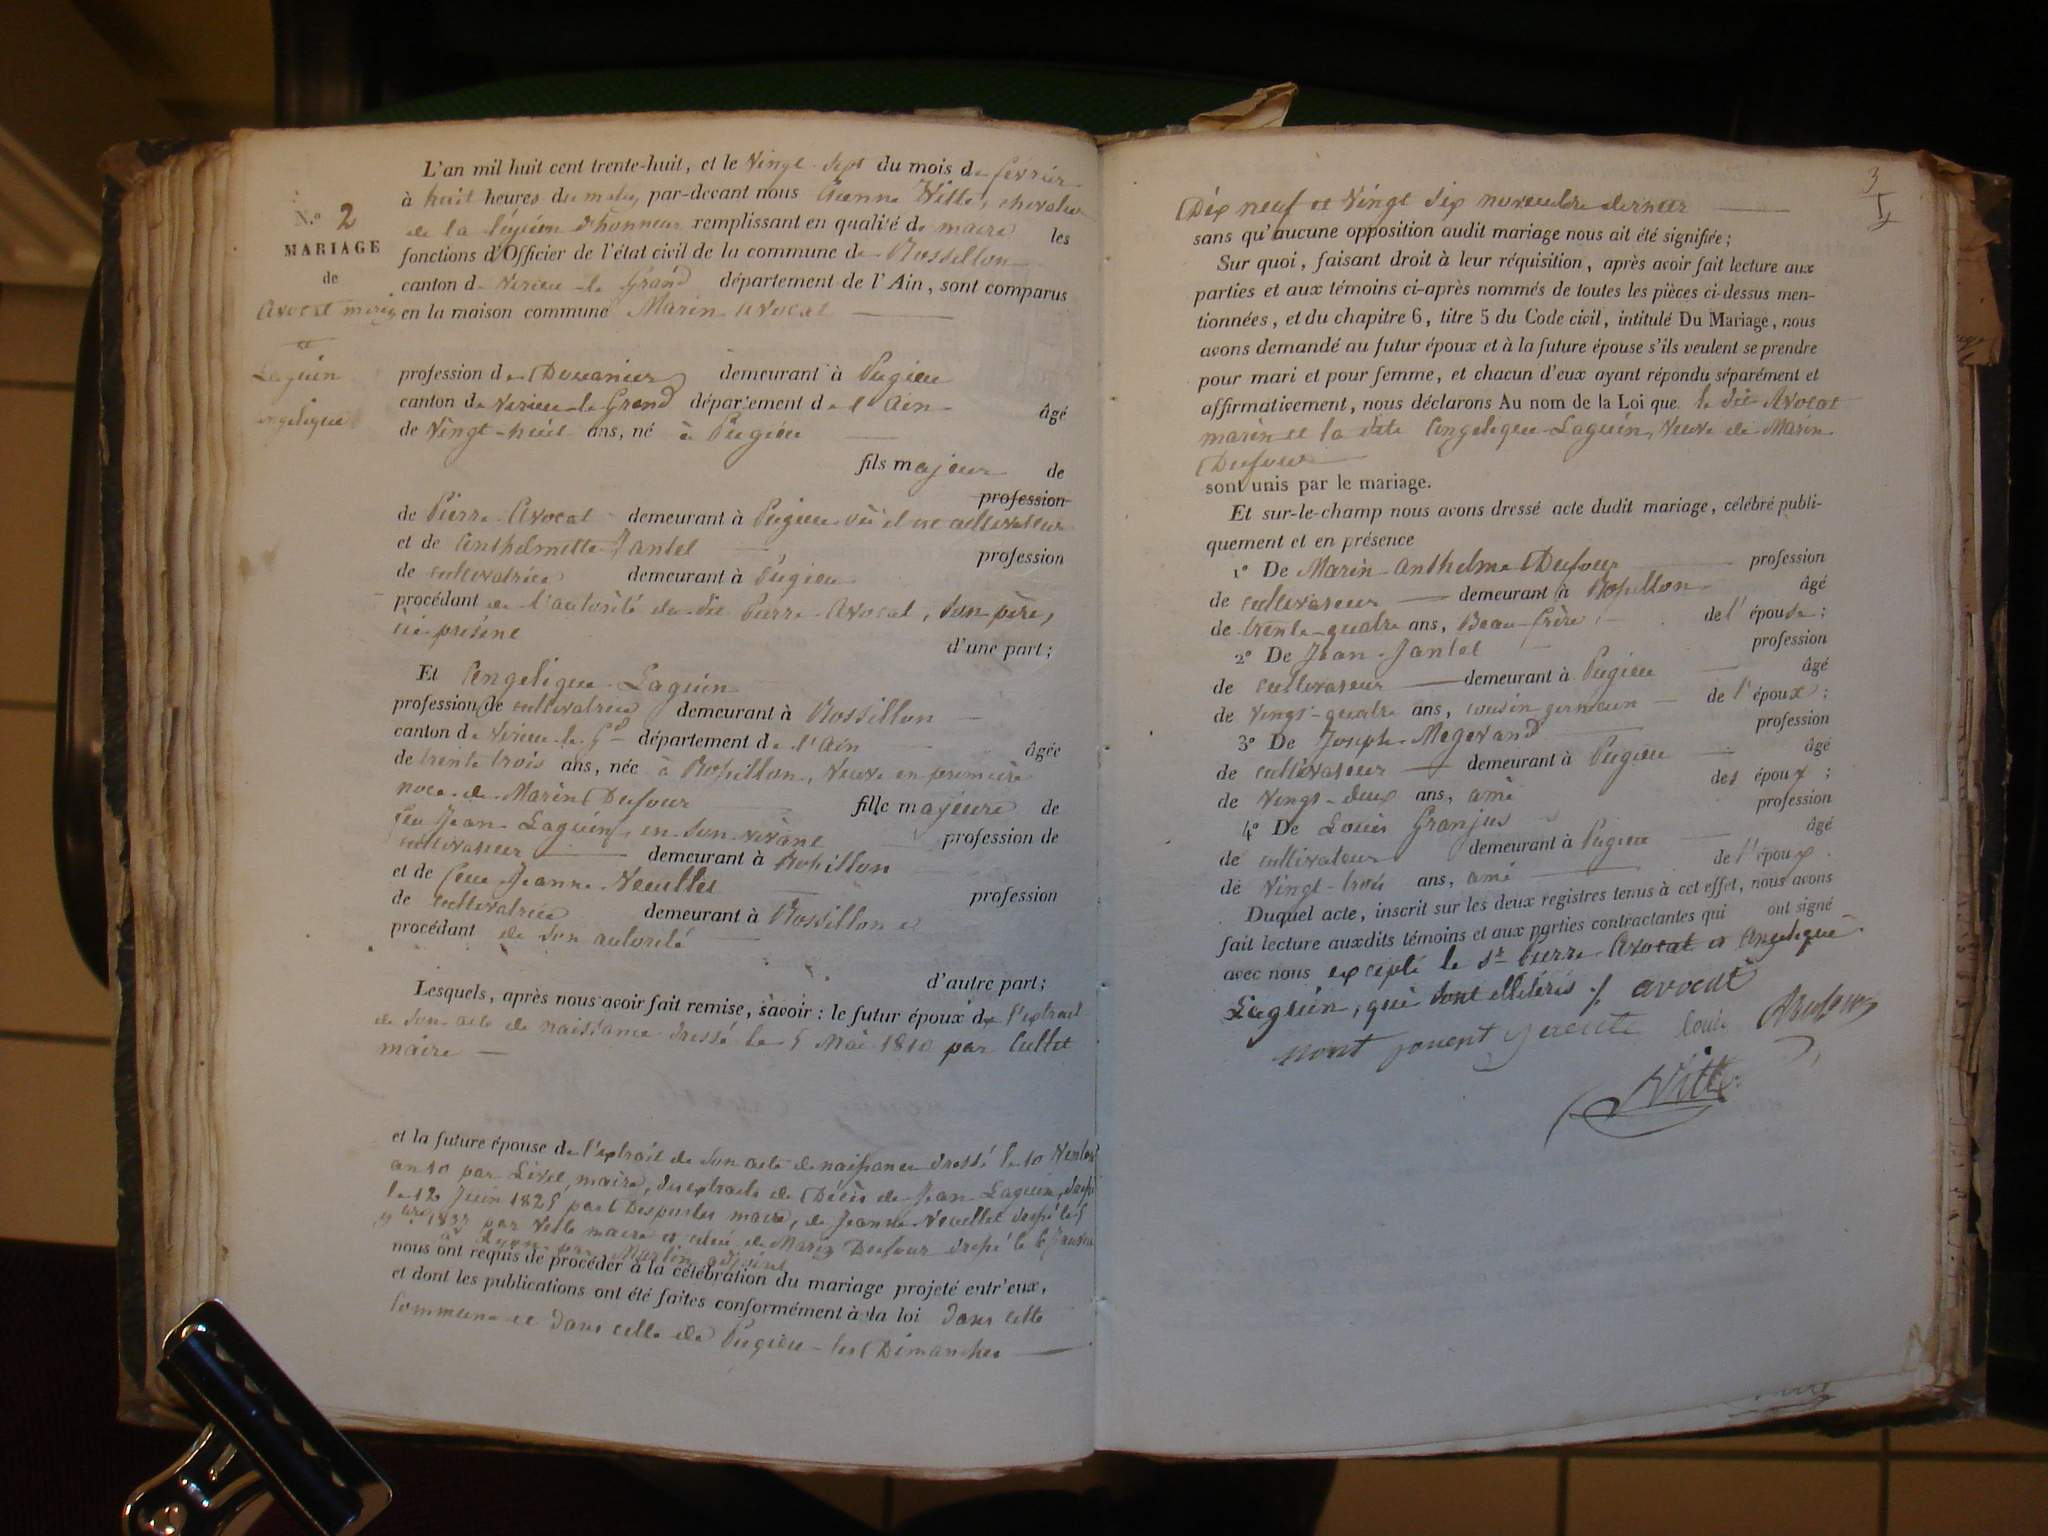 N.° 2
MARIAGE
de
Avocat marin
et
Laguin
angelique
L'an mil huit cent trente-huit, et le Vingt-sept du mois de février
à huit heures du matin, par-devant nous Vitte, chevalier
de la légion d'honneur remplissant en qualité de maire les
fonctions d'Officier de l'état civil de la commune de Rossillon
canton de Virieu-le Grand département de l'Ain, sont comparus
en la maison commune Marin Avocat
profession de Douanier demeurant à Pugieu
canton de Virieu-le-Grand département de l'Ain âgé
de Vingt-huit ans, né à Pugieu
fils majeur de
profession
de Pierre Avocat demeurant à Pugieu où il est cultivateur
et de Anthelmette Jantel profession
de cultivatrice demeurant à Pugieu
procédant de l'autorité du dit Pierre Avocat, son père,
ici présent
d'une part;
Et Angelique Laguin
profession de cultivatrice demeurant à Rossillon
canton de Virieu-le-Gd département de l'Ain âgée
de trente trois ans, née à Rossillon, Veuve en première
noce de Marin Dufour fille majeure de
feu Jean Laguin, en son vivant profession de
cultivateur demeurant à Rossillon
et de feue Jeanne Veuillet profession
de cultivatrice demeurant à Rossillon et
procédant de son autorité
d'autre part;
Lesquels, après nous avoir fait remise, savoir : le futur époux de l'extrait
de son acte de naissance dressé le 5 Mai 1810 par Cullet
maire
et la future épouse de l'extrait de son acte de naissance dressé le 10
an 10 par maire, des extraits de Décès de Jean Laguin, dressé
le 12 Juin 1825 par Desportes maire, de Jeanne Veuillet dressé le 5
par Vitte maire et celui de Marin Dufour dressé le 6
à Lyon par Martin adjoint
nous ont requis de procéder à la célébration du mariage projeté entr'eux,
et dont les publications ont été faites conformément à la loi dans cette
Commune et dans celle de Pugieu les Dimanches
3
Dix neuf et Vingt six novembre dernier
sans qu'aucune opposition audit mariage nous ait été signifiée;
Sur quoi, faisant droit à leur réquisition, après avoir fait lecture aux
parties et aux témoins ci-après nommés de toutes les pièces ci-dessus men-
tionnées, et du chapitre 6, titre 5 du Code civil, intitulé Du Mariage, nous
avons demandé au futur époux et à la future épouse s'ils veulent se prendre
pour mari et pour femme, et chacun d'eux ayant répondu séparément et
affirmativement, nous déclarons Au nom de la Loi que le dit Avocat
marin et la dite Angelique Laguin, Veuve de Marin
Dufour
sont unis par le mariage.
Et sur-le-champ nous avons dressé acte dudit mariage, célébré publi-
quement et en présence
1° De Marin Anthelme Dufour profession
de cultivateur demeurant à Rossillon âgé
de trente-quatre ans, Beau-frère de l'épouse;
2° De Jean Jantel profession
de cultivateur demeurant à Pugieu âgé
de vingt-quatre ans, cousin germain de l'époux;
3° De Joseph Megevand profession
de cultivateur demeurant à Pugieu âgé
de Vingt-deux ans, ami des époux;
4° De Louis Granjus profession
de cultivateur demeurant à Pugieu âgé
de Vingt-trois ans, ami de l'époux.
Duquel acte, inscrit sur les deux registres tenus à cet effet, nous avons
fait lecture auxdits témoins et aux parties contractantes qui ont signé
avec nous excepté le sr Pierre Avocat et Angelique
Laguin, qui sont illitérés ./. avocat
Louis
Vitte